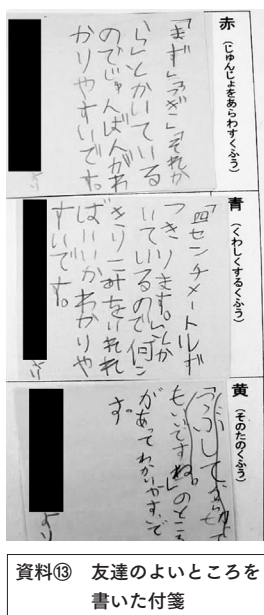 赤
(じゅんじょをあらわすくふう)
「まず」「つぎに」「それか
ら」とかいている
のでじゅんばんがわ
かりやすいです。
より
青
(くわしくするくふう)
「四センチメートルず
つきります。」とか
いているので何こ
きりこみをいれれ
ばいいかわかりや
すいです。
より
黄
(そのたのくふう)
もいいですね。」のところ
があってわかりやすいで
す。
より
資料⑬ 友達のよいところを
書いた付箋